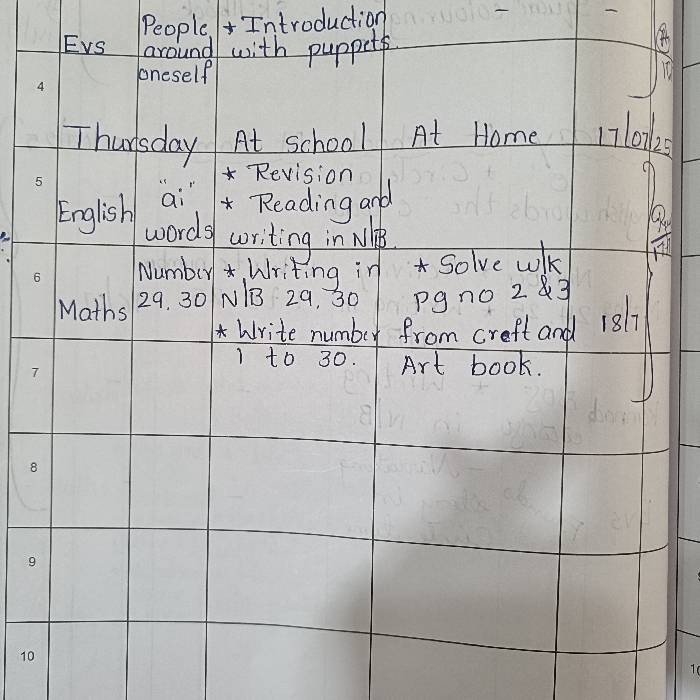 People * Introduction - -
Evs around with puppets.
oneself
4
Thursday At School At Home 17/07/25
* Revision
5 "ai" * Reading and
English words writing in N/B.
6 Number * Writing in * Solve w/k
Maths 29, 30 N/B 29, 30 pg no 2 & 3
* Write number from creft and 18/7
7 1 to 30. Art book.
8
9
10